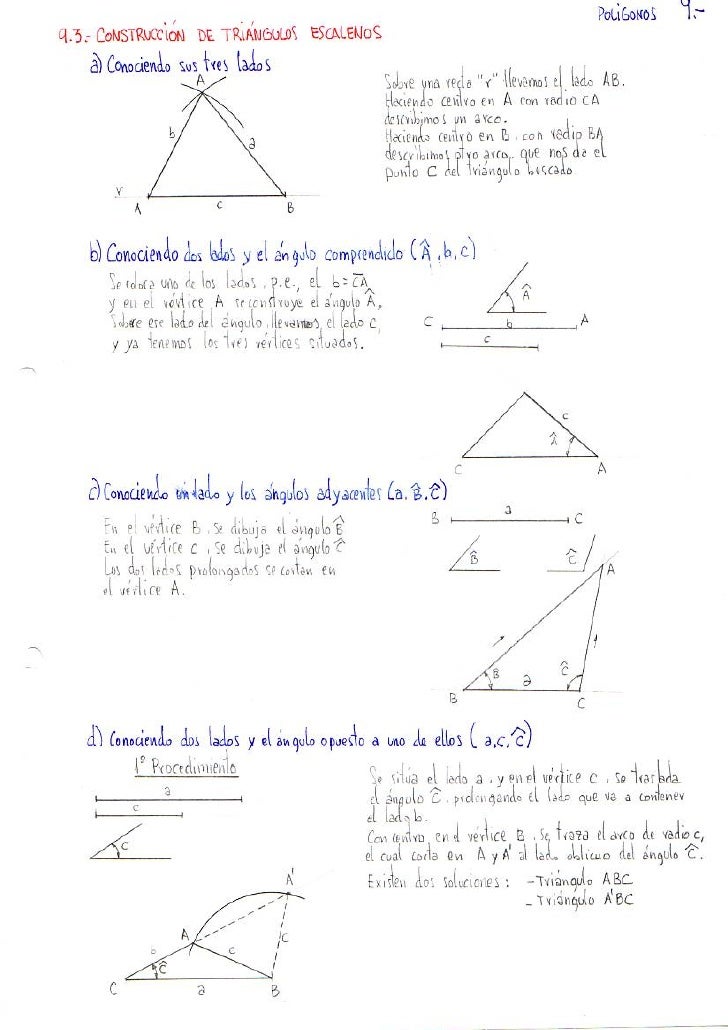 POLÍGONOS 9.-
9.3.- CONSTRUCCIÓN DE TRIÁNGULOS ESCALENOS
a) Conociendo sus tres lados
A
b
a
r
A
c
B
Sobre una recta "r" llevamos el lado AB.
Haciendo centro en A con radio CA
describimos un arco.
Haciendo centro en B, con radio BA
describimos otro arco, que nos da el
punto C del triángulo buscado
b) Conociendo dos lados y el ángulo comprendido (Â, b, c)
Se coloca uno de los lados, p.e., el b = CA
y en el vértice A se construye el ángulo Â,
Sobre ese lado del ángulo, llevamos el lado c,
y ya tenemos los tres vértices situados.
Â
C
b
A
c
c
Â
C
A
c) Conociendo un lado y los ángulos adyacentes (a, B̂, Ĉ)
En el vértice B, se dibuja el ángulo B̂
En el vértice C, se dibuja el ángulo Ĉ
Los dos lados prolongados se cortan en
el vértice A.
B
a
C
B̂
Ĉ
A
B̂
a
Ĉ
B
C
d) Conociendo dos lados y el ángulo opuesto a uno de ellos (a, c, Ĉ)
1º Procedimiento
a
c
C
Se sitúa el lado a, y en el vértice C, se traslada
el ángulo Ĉ, prolongando el lado que va a contener
el lado b.
Con centro en el vértice B, se traza el arco de radio c,
el cual corta en A y A' al lado oblicuo del ángulo Ĉ.
Existen dos soluciones: - Triángulo ABC
- Triángulo A'BC
A'
A
b
c
c
Ĉ
C
a
B